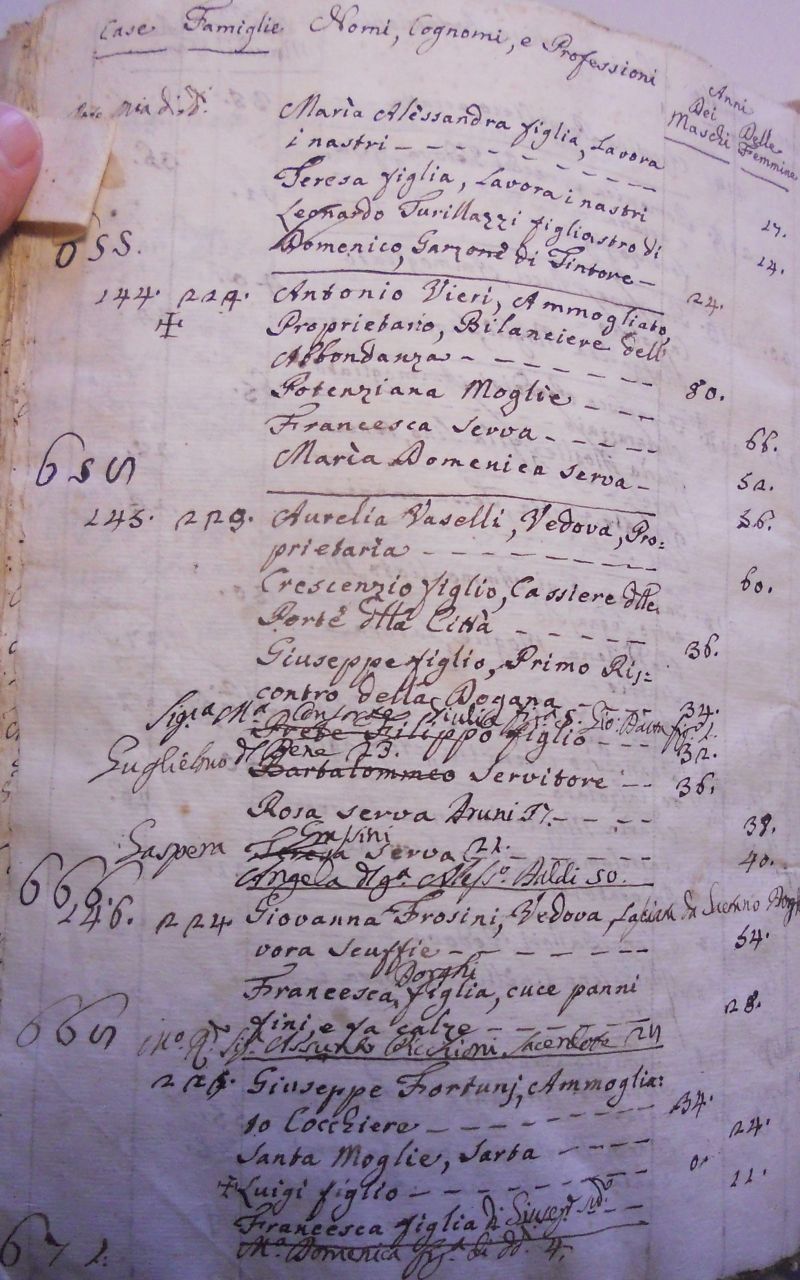 Case Famiglie Nomi, Cognomi, e Professioni
Anni
Dei Maschi
Delle Femmine
Marìa Alessandra figlia, Lavora
i nastri 17.
Teresa figlia, Lavora i nastri 14.
Leonardo Turillazzi figliastro di
Domenico, Garzone di Tintore 24.
655.
144. 224. Antonio Vieri, Ammogliato,
Proprietario, Bilanciere dell'
Abbondanza 80.
Potenziana Moglie 66.
Francesca serva 52.
Marìa Domenica serva 56.
655
145. 223. Aurelia Vaselli, Vedova, Pro=
prietaria 60.
Crescenzio figlio, Cassiere dlle
Porte dlla Città 36.
Giuseppe figlio, Primo Ris=
contro della Dogana 34.
Sig.a M.a Consorte Giulia
Prete Filippo figlio 32.
Guglielmo del Bene 23.
Bartolommeo servitore 36.
Rosa serva Bruni 57. 38.
Gaspera Grassini
Teresa serva 21. 40.
Angela Baldi 50.
666.
146. 224 Giovanna Frosini, Vedova, La=
vora scuffie 54.
Borghi
Francesca figlia, cuce panni
fini, e fa calze 28.
665
Assunto Sacerdote
225. Giuseppe Fortunj, Ammoglia=
to Cocchiere 34.
Santa Moglie, sarta 24.
Luigi figlio 0.
Francesca figlia di 11.
M.a Domenica fig.a di dd. 4.
671.